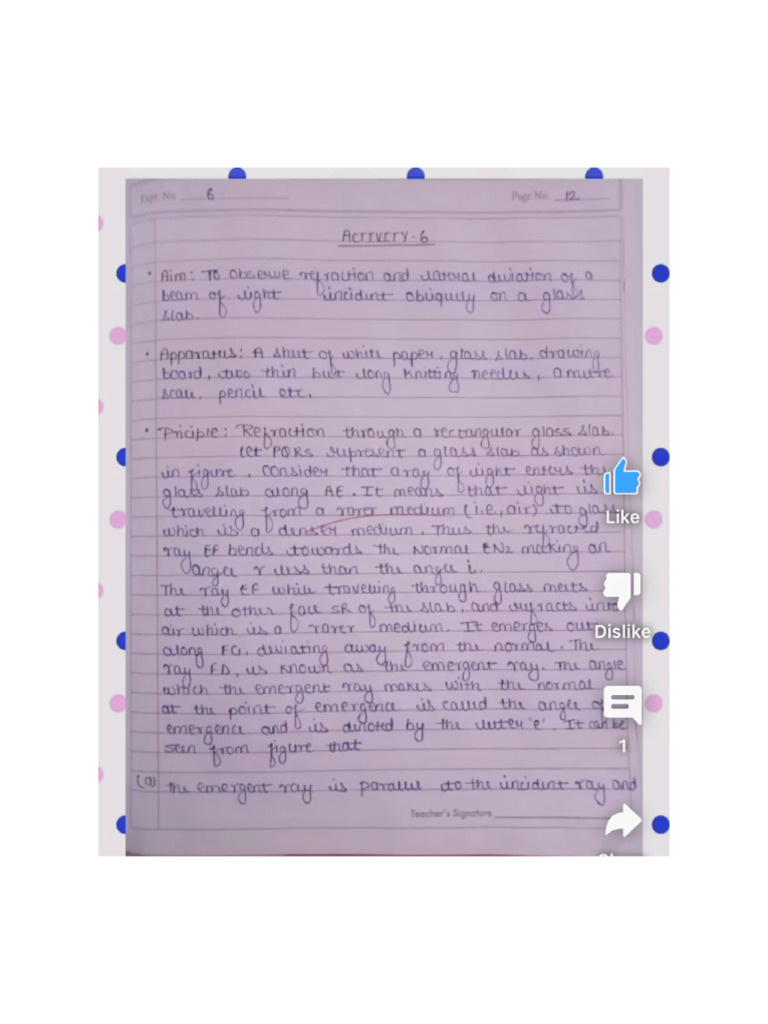 Expt. No. 6
Page No. 12
ACTIVITY-6
• Aim: To observe refraction and lateral deviation of a
beam of light incident obliquely on a glass
slab.
• Apparatus: A sheet of white paper, glass slab, drawing
board, two thin but long knitting needles, a metre
scale, pencil etc.
• Priciple: Refraction through a rectangular glass slab.
Let PQRS represent a glass slab as shown
in figure. Consider that a ray of light enters the
glass slab along AE. It means that light is
travelling from a rarer medium (i.e., air) to glass
which is a denser medium. Thus the refracted
ray EF bends towards the Normal EN2 making an
angle r less than the angle i.
The ray EF while travelling through glass meets
at the other face SR of the slab, and refracts into
air which is a rarer medium. It emerges out
along FG, deviating away from the normal. The
ray FD, is known as the emergent ray. The angle
which the emergent ray makes with the normal
at the point of emergence is called the angle of
emergence and is denoted by the letter 'e'. It can be
seen from figure that
(a) the emergent ray is parallel to the incident ray and
Teacher's Signature
Like
Dislike
1